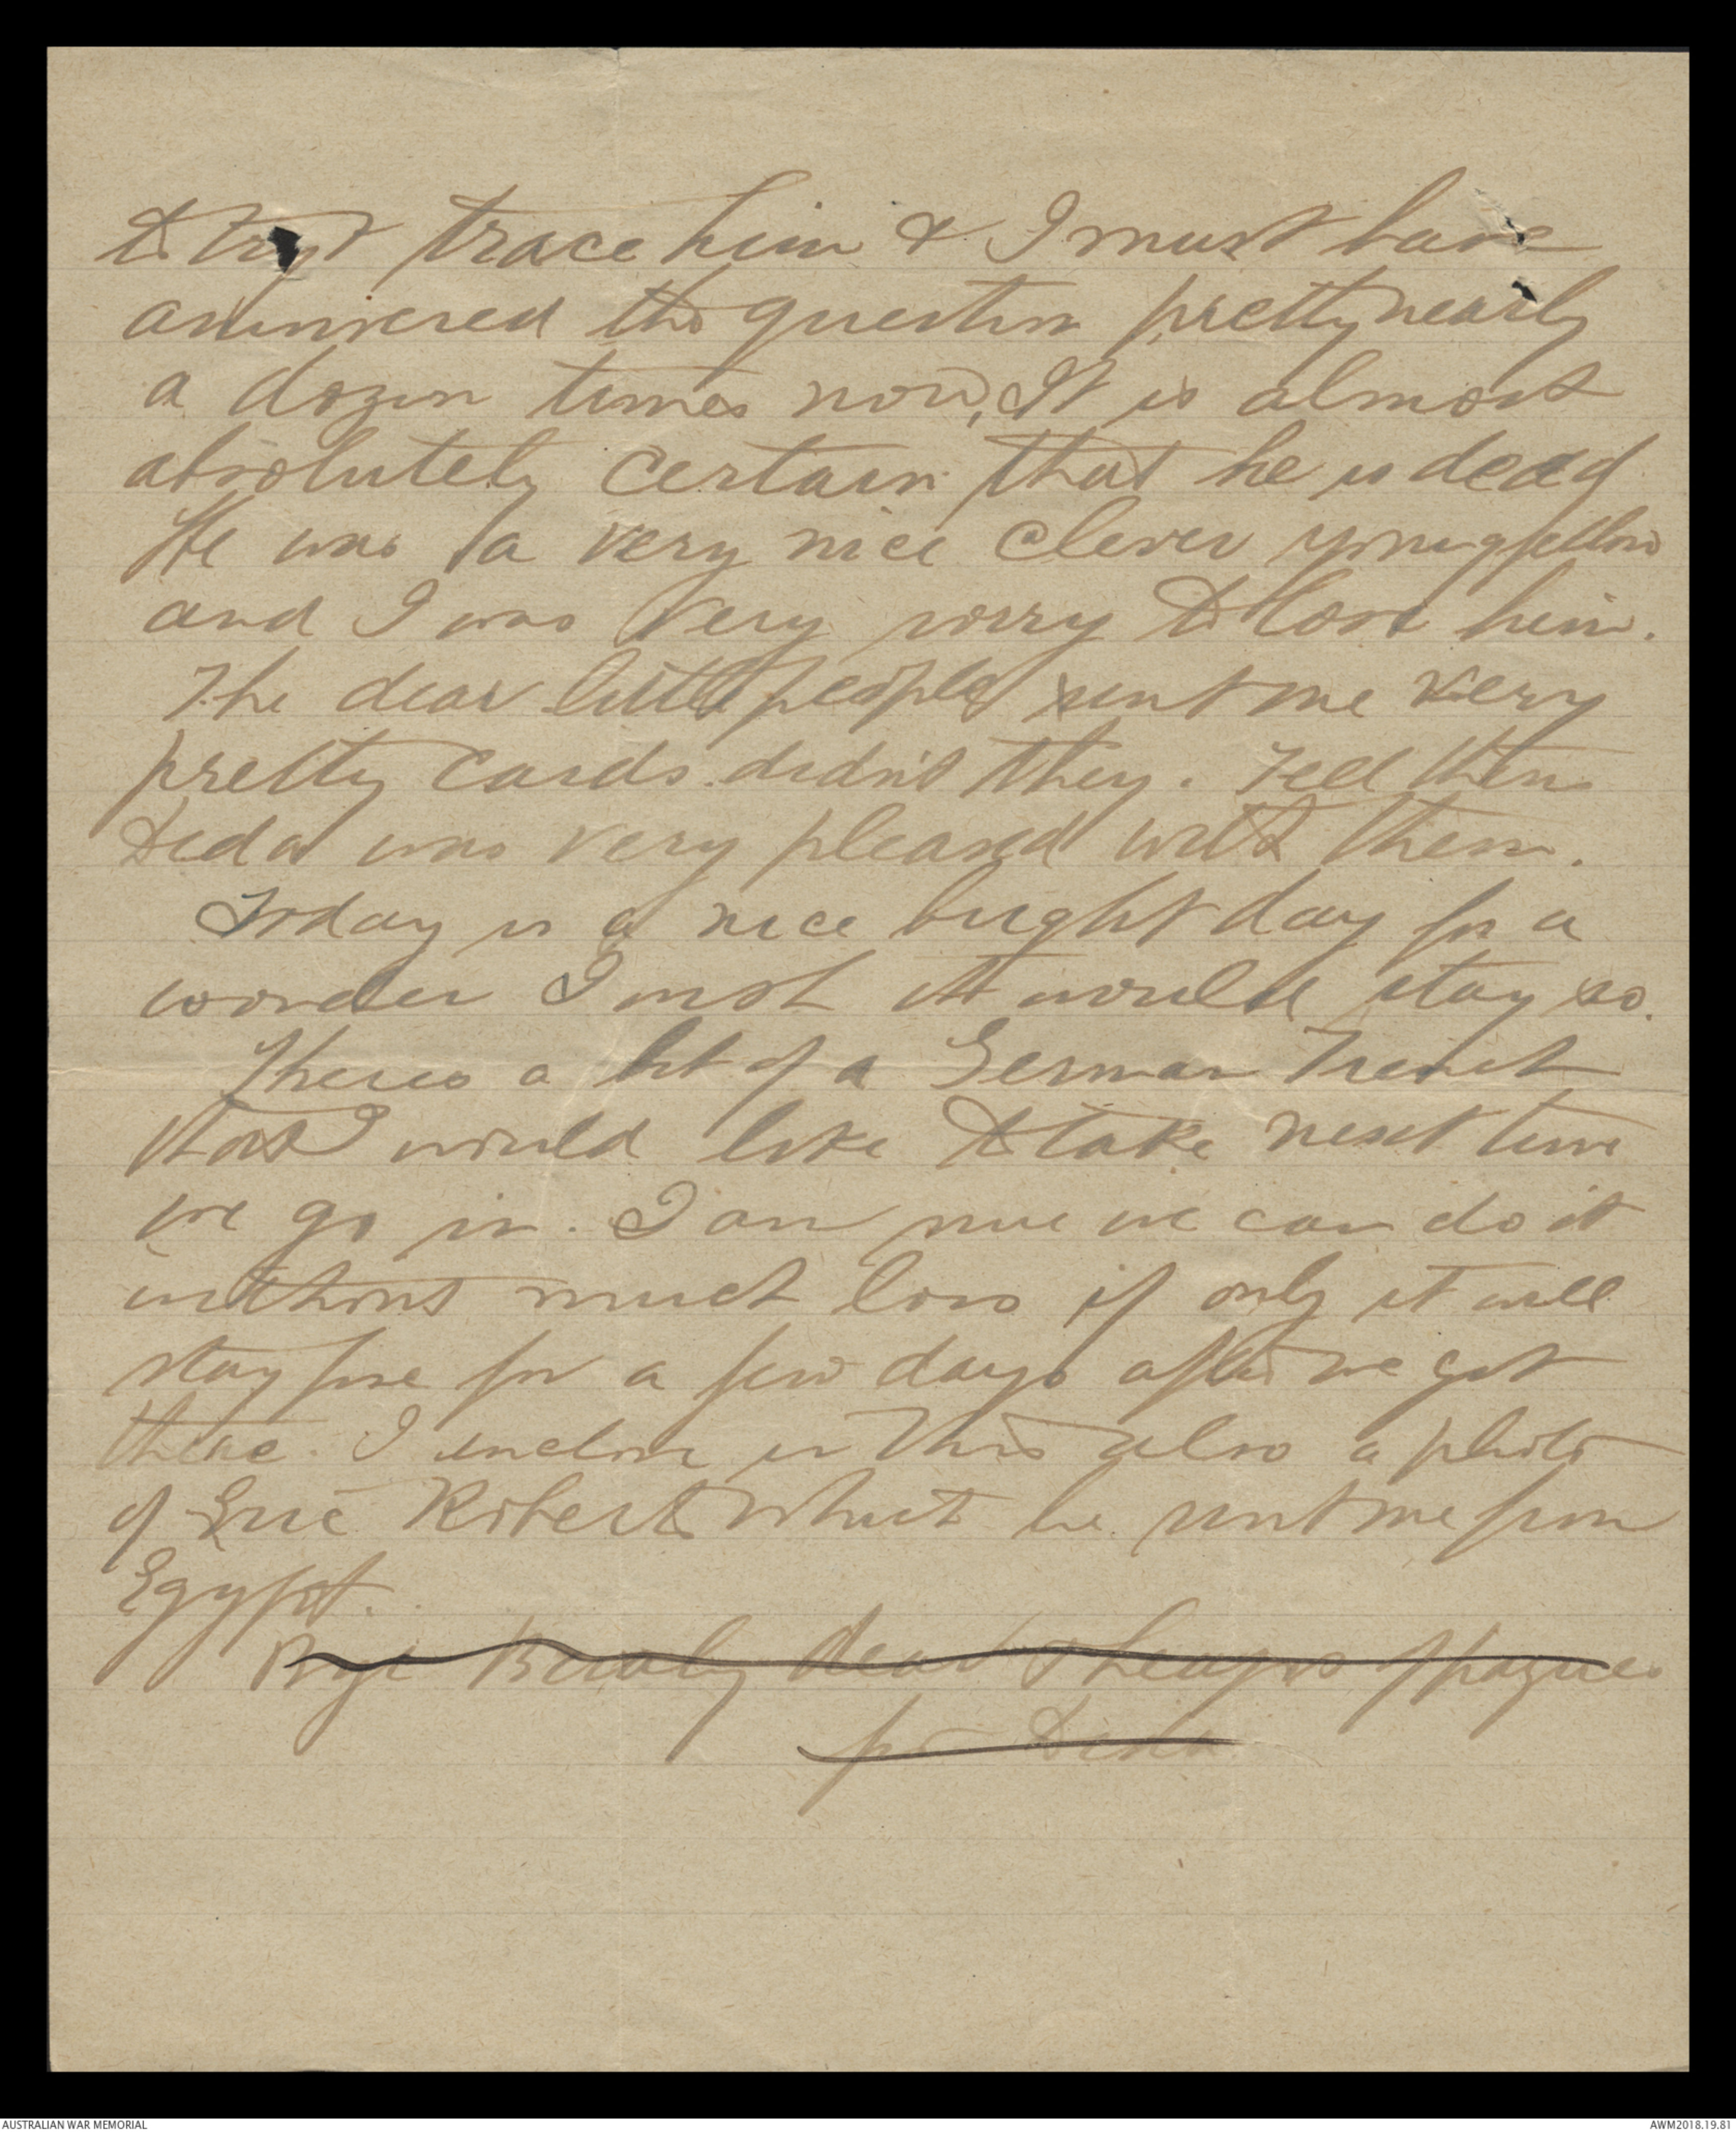 to try & trace him & I must have
answered the question pretty nearly
a dozen times now, It is almost
absolutely certain that he is dead
He was a very nice clever young fellow
and I was very sorry to lose him.
The dear little peoples sent me very
pretty cards didn't they. Tell them
Dida was very pleased with them.
Today is a nice bright day for a
wonder I wish it would stay so.
Theres a bit of a German Trench
that I would like to take next time
we go in. I am sure we can do it
without much loss if only it will
stay fine for a few days after we get
there. I enclose in this also a photo
of Eric Roberts which he sent me from
Egypt.
Bye Beraly dear & heaps of kazues
for Dida
AUSTRALIAN WAR MEMORIAL
AWM2018.19.81